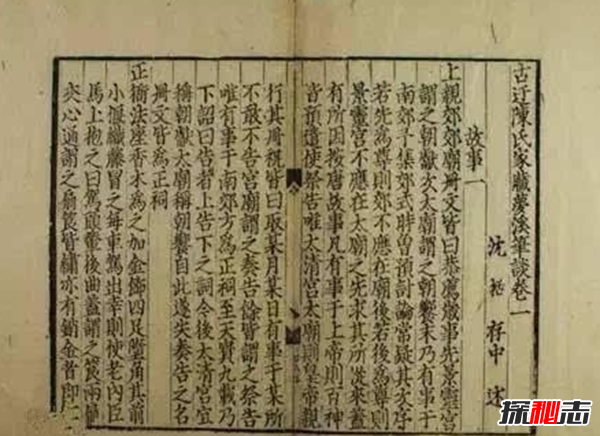 古迂陳氏家臧夢溪筆談卷一
沈括存中述
故事一
上親郊郊廟冊文皆曰恭薦歲事先景靈宮
謂之朝獻次太廟謂之朝饗末乃有事于
南郊予集郊式時曽預討論常疑其次序
若先為尊則郊不應在廟後若後為尊則
景靈宮不應在太廟之先求其所從來蓋
有所因按唐故事凡有事于上帝則百神
皆預遣使祭告唯太清宮太廟則皇帝親
行其冊祝皆曰取某月某日有事于某所
不敢不告宮廟謂之奏告餘皆謂之祭告
唯有事于南郊方為正祠至天寶九載乃
下詔曰告者上告下之詞今後太清宮宜
稱朝獻太廟稱朝饗自此遂失奏告之名
冊文皆為正祠
正衙法座香木為之加金飾四足墮角其前
小偃織藤冒之每車駕出幸則使老內臣
馬上抱之曰駕頭輦後曲蓋謂之筤兩扇
夾心通謂之扇筤皆繡亦有銷金者即
探秘志